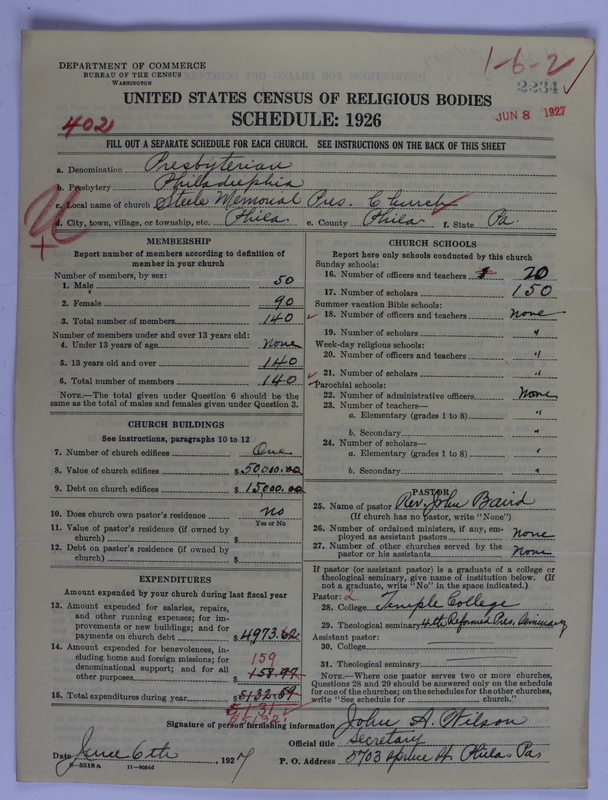 DEPARTMENT OF COMMERCE
BUREAU OF THE CENSUS
WASHINGTON
1-6-2
2234
JUN 8 1927
UNITED STATES CENSUS OF RELIGIOUS BODIES
SCHEDULE: 1926
4021
FILL OUT A SEPARATE SCHEDULE FOR EACH CHURCH. SEE INSTRUCTIONS ON THE BACK OF THIS SHEET
a. Denomination Presbyterian
b. Presbytery Philadelphia
c. Local name of church Steele Memorial Pres. Church
d. City, town, village, or township, etc. Phila. e. County Phila. f. State Pa.
MEMBERSHIP
Report number of members according to definition of
member in your church
Number of members, by sex:
1. Male 50
2. Female 90
3. Total number of members 140
Number of members under and over 13 years old:
4. Under 13 years of age none
5. 13 years old and over 140
6. Total number of members 140
NOTE.—The total given under Question 6 should be the
same as the total of males and females given under Question 3.
CHURCH BUILDINGS
See instructions, paragraphs 10 to 12
7. Number of church edifices One
8. Value of church edifices $50000.00
9. Debt on church edifices $15000.00
10. Does church own pastor's residence no
Yes or No
11. Value of pastor's residence (if owned by
church) $
12. Debt on pastor's residence (if owned by
church) $
EXPENDITURES
Amount expended by your church during last fiscal year
13. Amount expended for salaries, repairs,
and other running expenses; for im-
provements or new buildings; and for
payments on church debt $4973.62
14. Amount expended for benevolences, in-
cluding home and foreign missions; for
denominational support; and for all
other purposes 159 158.97
15. Total expenditures during year $5132.59
5131
5132
CHURCH SCHOOLS
Report here only schools conducted by this church
Sunday schools:
16. Number of officers and teachers 20
17. Number of scholars 150
Summer vacation Bible schools:
18. Number of officers and teachers none
19. Number of scholars "
Week-day religious schools:
20. Number of officers and teachers "
21. Number of scholars "
Parochial schools:
22. Number of administrative officers None
23. Number of teachers—
a. Elementary (grades 1 to 8) "
b. Secondary "
24. Number of scholars—
a. Elementary (grades 1 to 8) "
b. Secondary "
PASTOR
25. Name of pastor Rev. John Baird
(If church has no pastor, write "None")
26. Number of ordained ministers, if any, em-
ployed as assistant pastors none
27. Number of other churches served by the
pastor or his assistants none
If pastor (or assistant pastor) is a graduate of a college or
theological seminary, give name of institution below. (If
not a graduate, write "No" in the space indicated.)
Pastor: 2
28. College Temple College
29. Theological seminary Reformed Pres. Seminary
Assistant pastor:
30. College
31. Theological seminary
NOTE.—Where one pastor serves two or more churches,
Questions 28 and 29 should be answered only on the schedule
for one of the churches; on the schedules for the other churches,
write "See schedule for church."
Signature of person furnishing information John A. Wilson
Official title Secretary
Date June 6th, 1927 P. O. Address 5703 Spruce St Phila Pa
8-5518a 11-90346